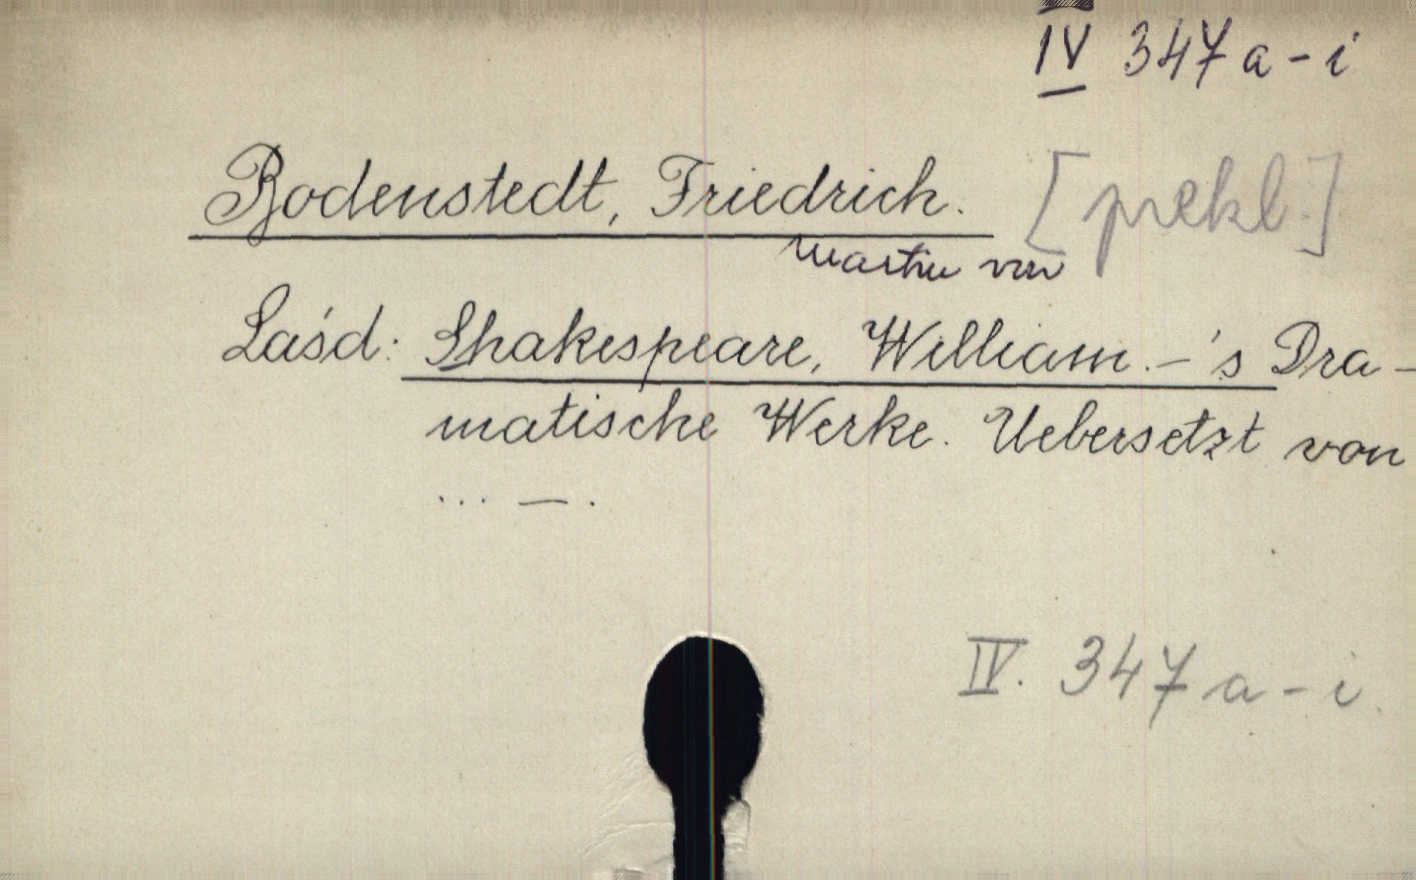 IV 347 a - i
Bodenstedt, Friedrich. [prekl.]
Martin von
Lásd: Shakespeare, William. - 's Dra-
matische Werke. Uebersetzt von
... — .
IV. 347 a - i.